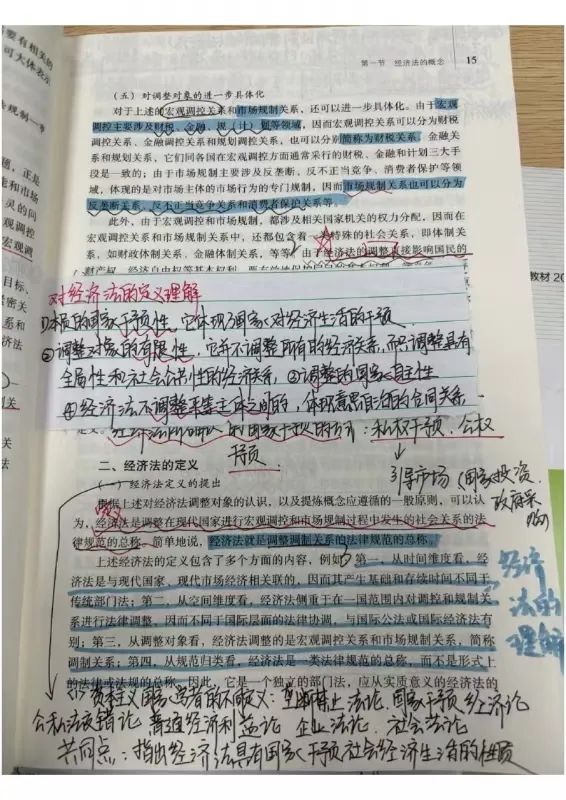 第一节 经济法的概念 15
（五）对调整对象的进一步具体化
对于上述的宏观调控关系和市场规制关系，还可以进一步具体化。由于宏观
调控主要涉及财税、金融、规（计）划等领域，因而宏观调控关系可以分为财税
调控关系、金融调控关系和规划调控关系，也可以分别简称为财税关系、金融关
系和规划关系，它们同各国在宏观调控方面通常采行的财税、金融和计划三大手
段是一致的；由于市场规制主要涉及反垄断、反不正当竞争、消费者保护等领
域，体现的是对市场主体的市场行为的专门规制，因而市场规制关系也可以分为
反垄断关系、反不正当竞争关系和消费者保护关系等。
此外，由于宏观调控和市场规制，都涉及相关国家机关的权力分配，因而在
宏观调控关系和市场规制关系中，还都包含着一类特殊的社会关系，即体制关
系，如财政体制关系、金融体制关系，等等。由于经济法的调整直接影响国民的
财产权、经济自由权等基本权利
对经济法的定义理解
①本质的国家干预性，它体现了国家对经济生活的干预
②调整对象的有限性，它并不调整所有的经济关系，而只调整具有
全局性和社会公共性的经济关系，③调整的国家自主性
④经济法不调整平等主体之间的，体现意思自治的合同关系.
的国家干预的 私权干预、公权
干预
引导市场（国家投资，
政府采购）
二、经济法的定义
（一）经济法定义的提出
根据上述对经济法调整对象的认识，以及提炼概念应遵循的一般原则，可以认
为，经济法是调整在现代国家进行宏观调控和市场规制过程中发生的社会关系的法
律规范的总称。简单地说，经济法就是调整调制关系的法律规范的总称。
上述经济法的定义包含了多个方面的内容，例如，第一，从时间维度看，经
济法是与现代国家、现代市场经济相关联的，因而其产生基础和存续时间不同于
传统部门法；第二，从空间维度看，经济法侧重于在一国范围内对调控和规制关
系进行法律调整，因而不同于国际层面的法律协调，与国际公法或国际经济法有
别；第三，从调整对象看，经济法调整的是宏观调控关系和市场规制关系，简称
调制关系；第四，从规范归类看，经济法是一类法律规范的总称，而不是形式上
的法律或法规的总称。因此，它是一个独立的部门法，应从实质意义的经济法的
经济
法的
理解
资本主义国家学者的不同定义：垄断禁止法论、国家干预经济论
公私法交错论、普遍经济利益论、企业法论、社会法论
共同点：指出经济法具有国家干预社会经济生活的性质